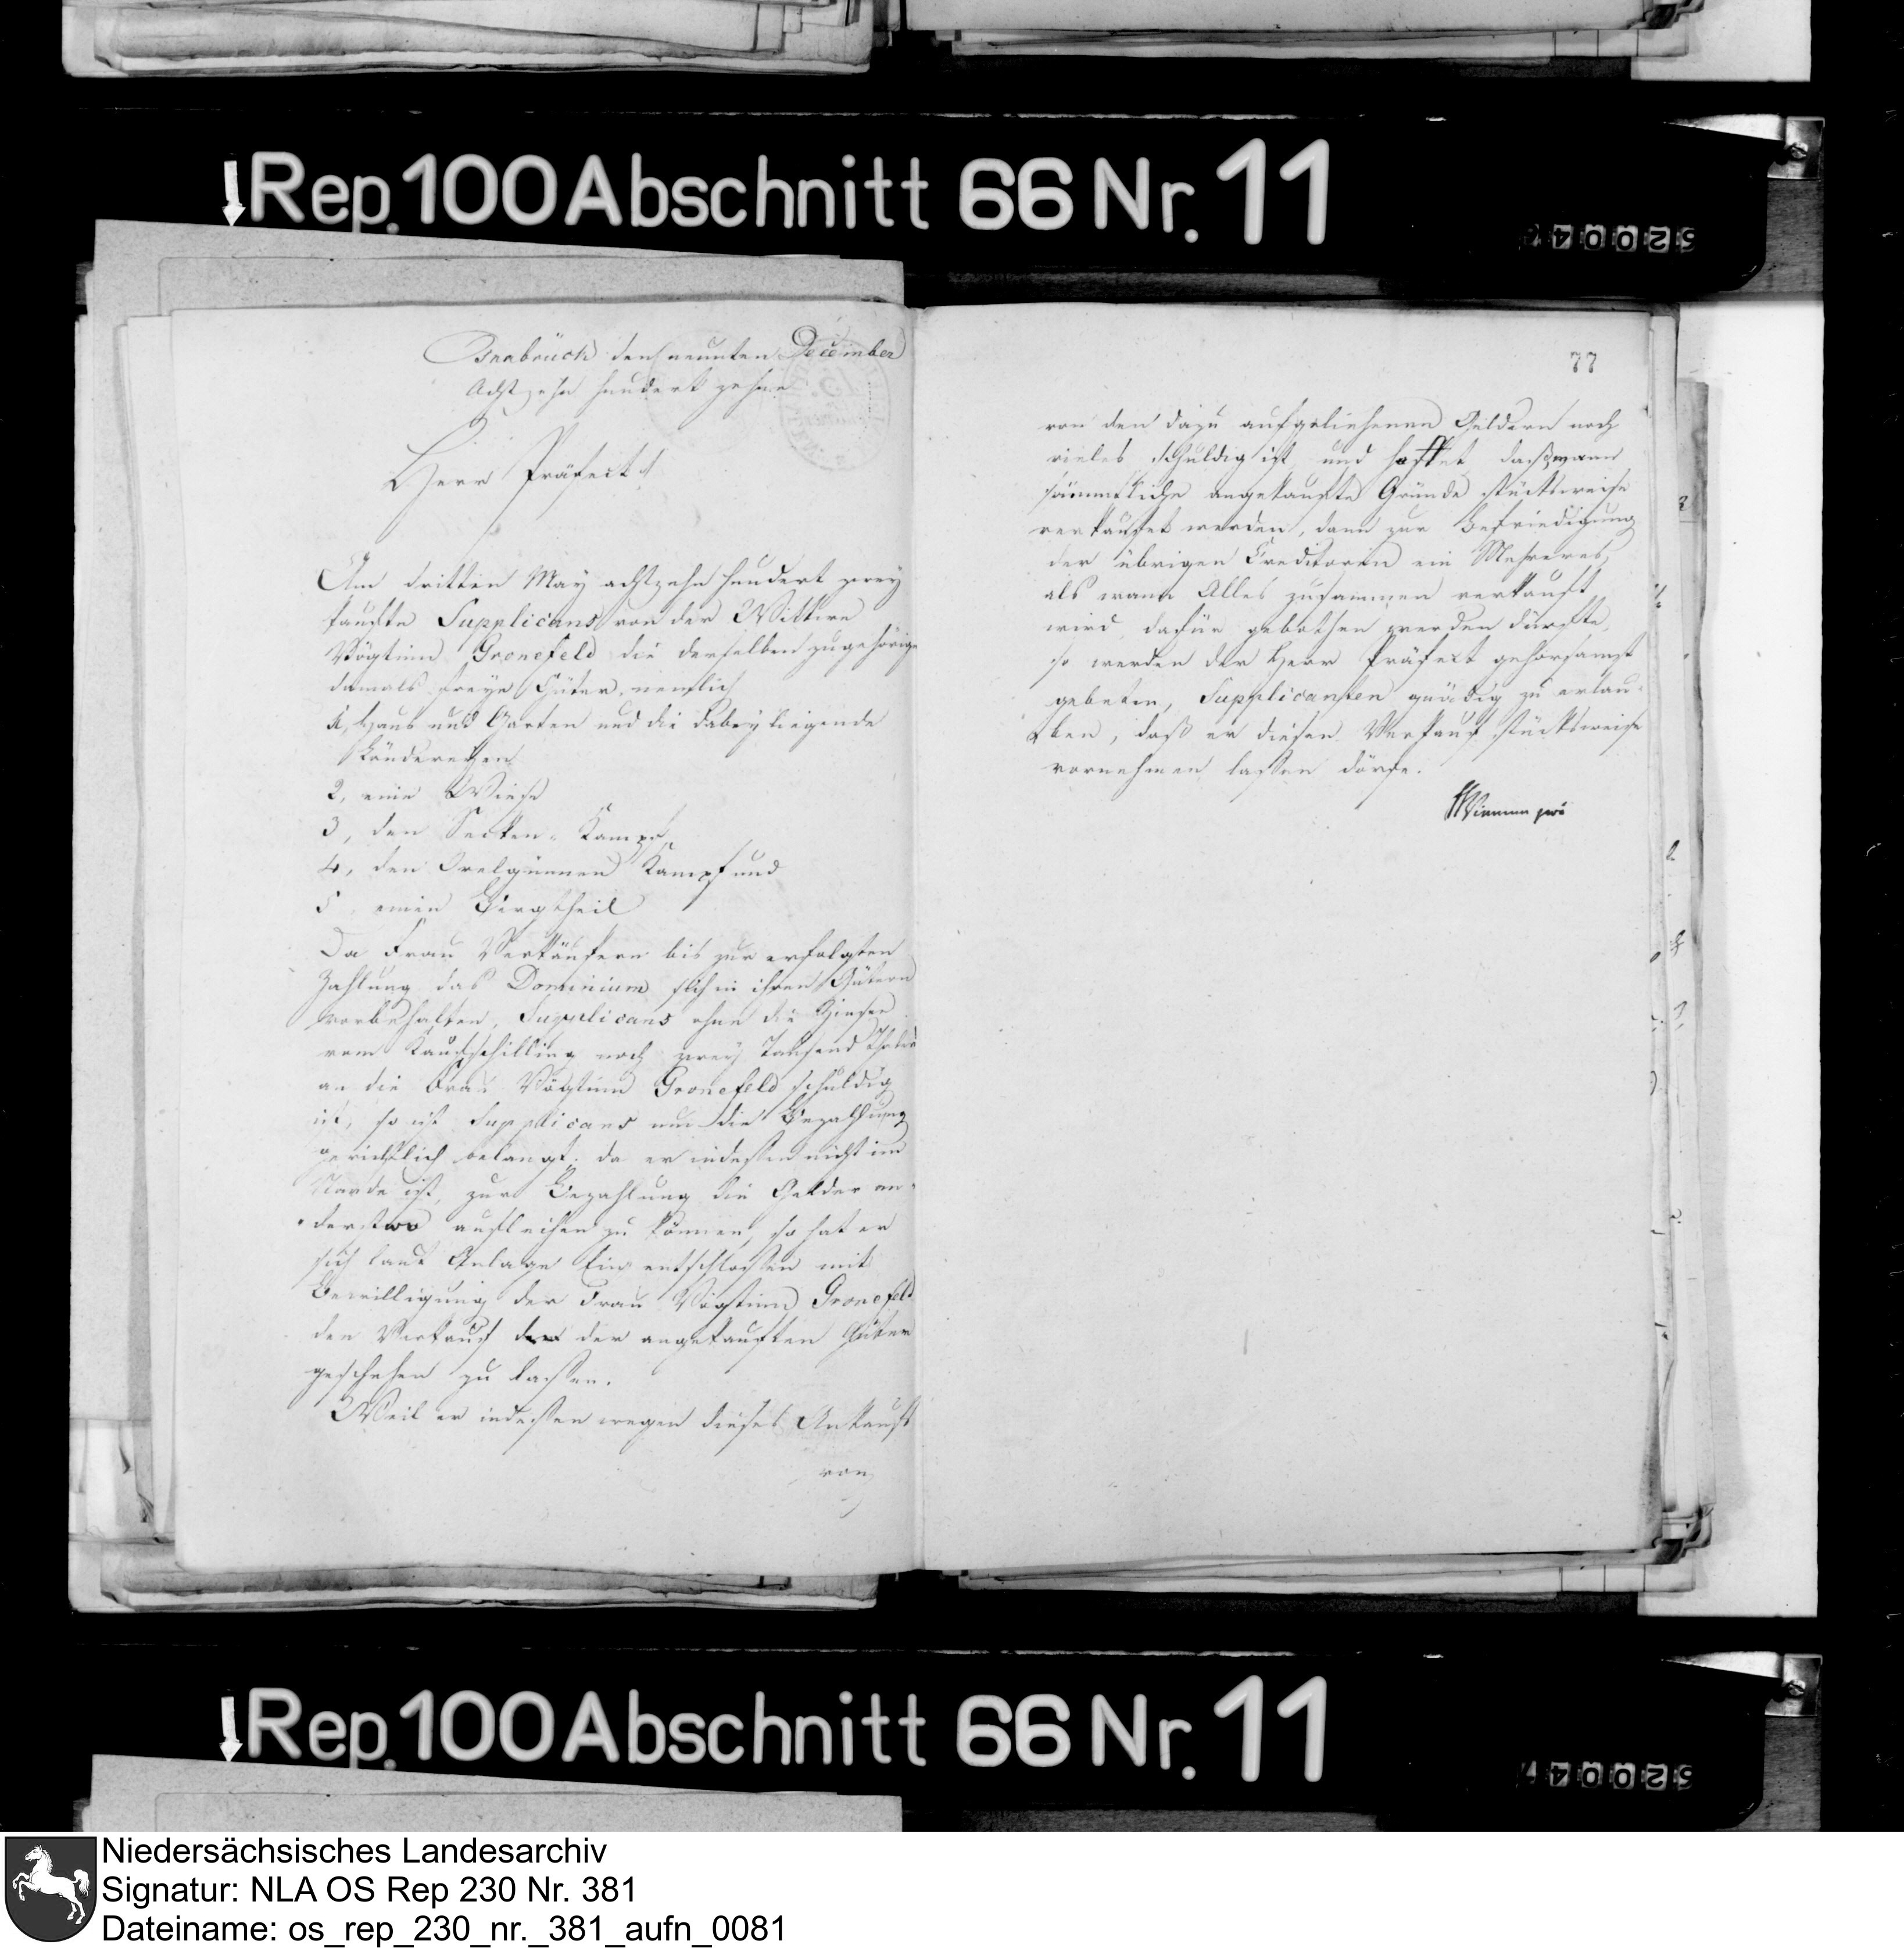 Rep. 100 Abschnitt 66 Nr. 11
Osnabrück den neunten December
Achtzehn hundert zehn
Herr Präfect!
Am dritten May achtzehn hundert zwey
kaufte Supplicans von der Wittwe
Vögtinn Gronefeld die derselben zugehörige
damals freye Güter, nemlich
1, Haus und Garten und die dabey liegende
Ländereyen
2, eine Wiese
3, den Kamp
4, den Kampf und
5, einen Bergtheil
Da Frau Verkäufern bis zur erfolgten
Zahlung das Dominium sich in ihren Gütern
vorbehalten, Supplicans ohne die Zinsen
vom Kaufschilling noch zwey Tausend Thaler
an die Frau Vögtinn Gronefeld schuldig
ist, so ist Supplicans um die Bezahlung
gerichtlich belangt; da er indessen nicht im
Stande ist, zur Bezahlung die Gelder an-
derstwo aufleihen zu können, so hat er
sich laut Anlage Eins entschlossen mit
Bewilligung der Frau Vögtinn Gronefeld
den Verkauf der angekauften Güter
geschehen zu lassen.
Weil er indessen wegen dieses Ankaufs
von
77
von den dazu aufgeliehenen Geldern noch
vieles schuldig ist und hoffet, daß wann
sämmtliche angekaufte Gründe stücksweise
verkaufet werden, dann zur Befriedigung
der übrigen Creditoren ein Mehreres,
als wann Alles zusammen verkauft
wird, dafür gebothen werden dürfte,
so werden der Herr Präfect gehorsamst
gebeten, Supplicanten gnädig zu erlau-
ben, daß er diesen Verkauf stücksweise
vornehmen lassen dörfe.
Rep. 100 Abschnitt 66 Nr. 11
Niedersächsisches Landesarchiv
Signatur: NLA OS Rep 230 Nr. 381
Dateiname: os_rep_230_nr._381_aufn_0081